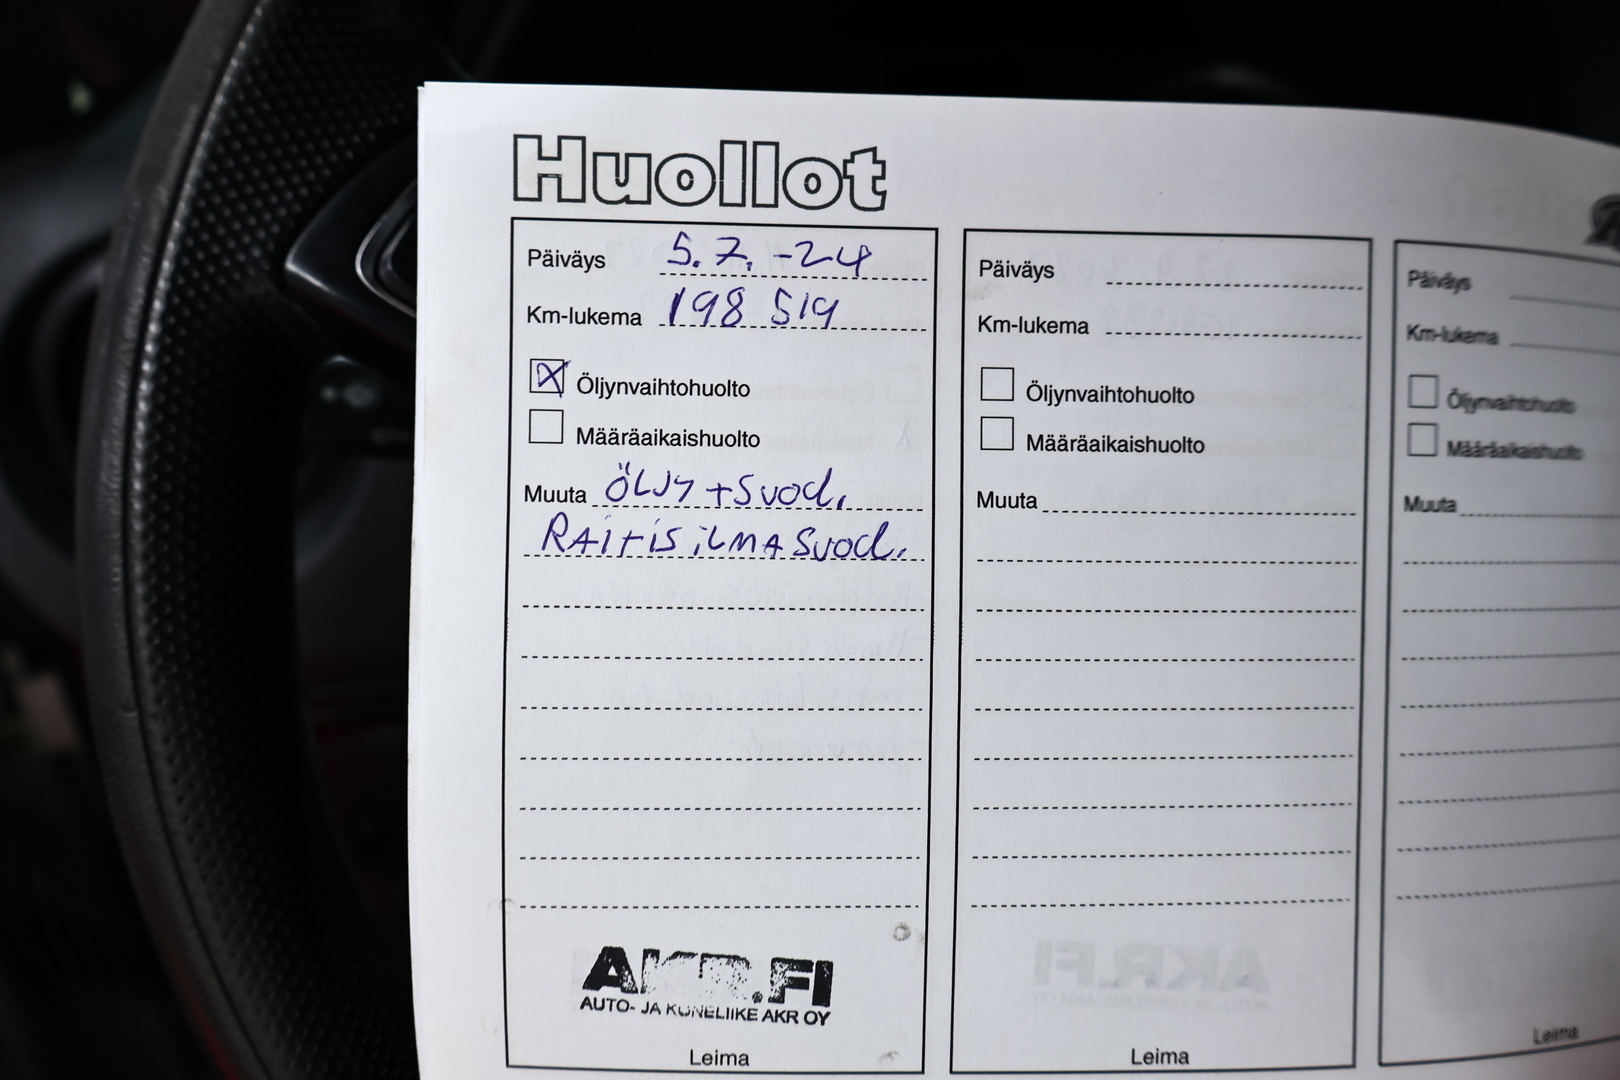 Huollot
Päiväys 5.7.-24
Km-lukema 198 519
Öljynvaihtohuolto
Määräaikaishuolto
Muuta ÖLJY + SUOD.
RAITIS iLMASUOD.
AKR.FI
AUTO- JA KONELIIKE AKR OY
Leima
Päiväys
Km-lukema
Öljynvaihtohuolto
Määräaikaishuolto
Muuta
Leima
Päiväys
Km-lukema
Öljynvaihtohuolto
Määräaikaishuolto
Muuta
Leima